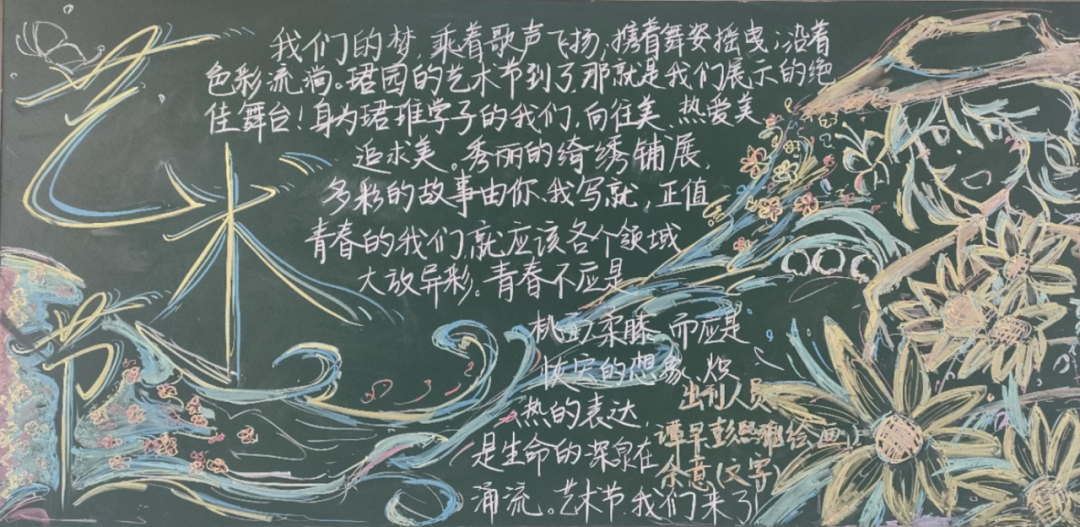 艺术节
我们的梦,乘着歌声飞扬,携着舞姿摇曳;沿着
色彩流淌。珺园的艺术节到了那就是我们展示的绝
佳舞台!身为珺琟学子的我们,向往美、热爱美、
追求美。秀丽的绮绣铺展,
多彩的故事由你、我写就,正值
青春的我们,就应该各个领域
大放异彩。青春不应是
柔膝,而应是
的想象、炽
热的表达,
是生命的深泉在
涌流。艺术节,我们来了!
出刊人员
谭早彭 绘画
余意(文字)